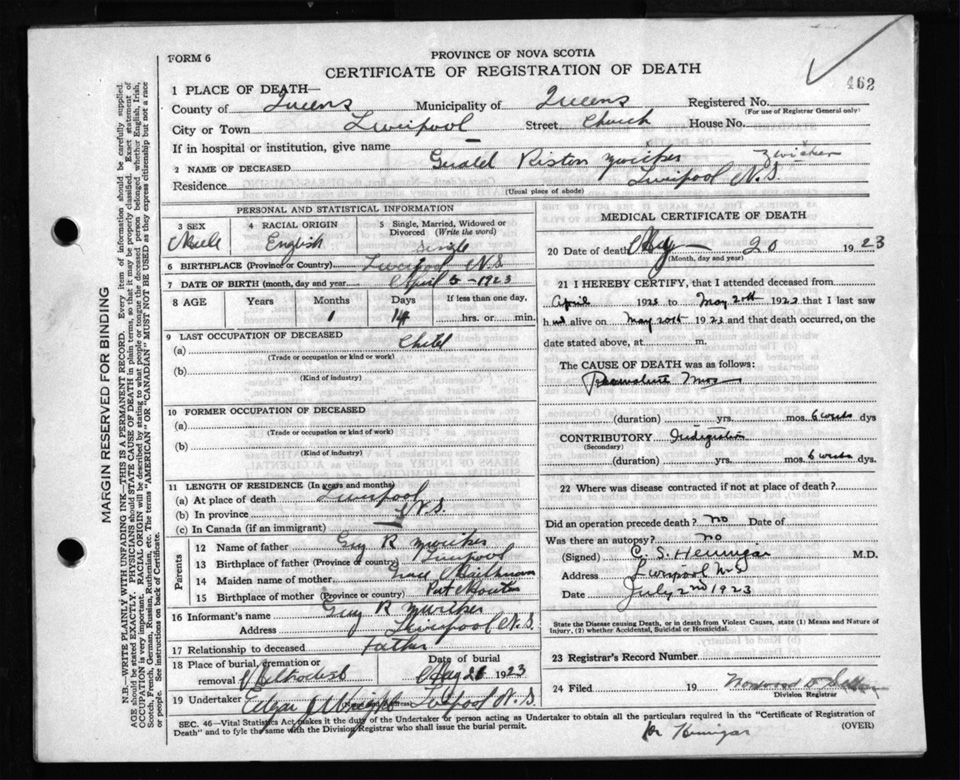 FORM 6
PROVINCE OF NOVA SCOTIA
CERTIFICATE OF REGISTRATION OF DEATH
462
1 PLACE OF DEATH—
County of Queens Municipality of Queens Registered No.
(For use of Registrar General only)
City or Town Liverpool Street Church House No.
If in hospital or institution, give name
2 NAME OF DECEASED Zwicker
Residence Liverpool N.S.
(Usual place of abode)
PERSONAL AND STATISTICAL INFORMATION
3 SEX 4 RACIAL ORIGIN 5 Single, Married, Widowed or Divorced (Write the word)
Male English Single
6 BIRTHPLACE (Province or Country) Liverpool N.S.
7 DATE OF BIRTH (month, day and year) April 5 - 1923
8 AGE Years Months Days If less than one day,
1 14 hrs. or min.
9 LAST OCCUPATION OF DECEASED
(a) Child
(Trade or occupation or kind or work)
(b)
(Kind of industry)
10 FORMER OCCUPATION OF DECEASED
(a)
(Trade or occupation or kind or work)
(b)
(Kind of industry)
11 LENGTH OF RESIDENCE (In years and months)
(a) At place of death Liverpool
(b) In province N.S.
(c) In Canada (if an immigrant)
Parents
12 Name of father Guy R
13 Birthplace of father (Province or country) Liverpool
14 Maiden name of mother
15 Birthplace of mother (Province or country)
16 Informant's name Guy R
Address Liverpool N.S.
17 Relationship to deceased Father
18 Place of burial, cremation or removal Methodist Date of burial May 21 1923
19 Undertaker Edgar Wright Liverpool N.S.
MEDICAL CERTIFICATE OF DEATH
20 Date of death May 20 1923
(Month, day and year)
21 I HEREBY CERTIFY, that I attended deceased from
April 1923 to May 20th 1923 that I last saw
him alive on May 20th 1923 and that death occurred, on the
date stated above, at m.
The CAUSE OF DEATH was as follows:
(duration) yrs. mos. 6 weeks dys
CONTRIBUTORY Indigestion
(Secondary)
(duration) yrs. mos. 6 weeks dys
22 Where was disease contracted if not at place of death?
Did an operation precede death? no Date of
Was there an autopsy? no
(Signed) C. S. Hennigar M.D.
Address Liverpool N.S.
Date July 2nd 1923
State the Disease causing Death, or in death from Violent Causes, state (1) Means and Nature of
Injury, (2) whether Accidental, Suicidal or Homicidal.
23 Registrar's Record Number
24 Filed 19
Division Registrar
SEC. 46—Vital Statistics Act makes it the duty of the Undertaker or person acting as Undertaker to obtain all the particulars required in the "Certificate of Registration of
Death" and to fyle the same with the Division Registrar who shall issue the burial permit. (OVER)
Dr Hennigar
MARGIN RESERVED FOR BINDING
N.B.—WRITE PLAINLY WITH UNFADING INK—THIS IS A PERMANENT RECORD. Every item of information should be carefully supplied.
AGE should be stated EXACTLY. PHYSICIANS should STATE CAUSE OF DEATH in plain terms, so that it may be properly classified. Exact statement of
OCCUPATION is very important. RACIAL ORIGIN will be described by stating to what people or tongue the deceased person belonged whether English, Irish,
Scotch, French, German, Russian, Ruthenian, etc. The terms "AMERICAN" OR "CANADIAN" MUST NOT BE USED as they express citizenship but not a race
or people. See instructions on back of Certificate.